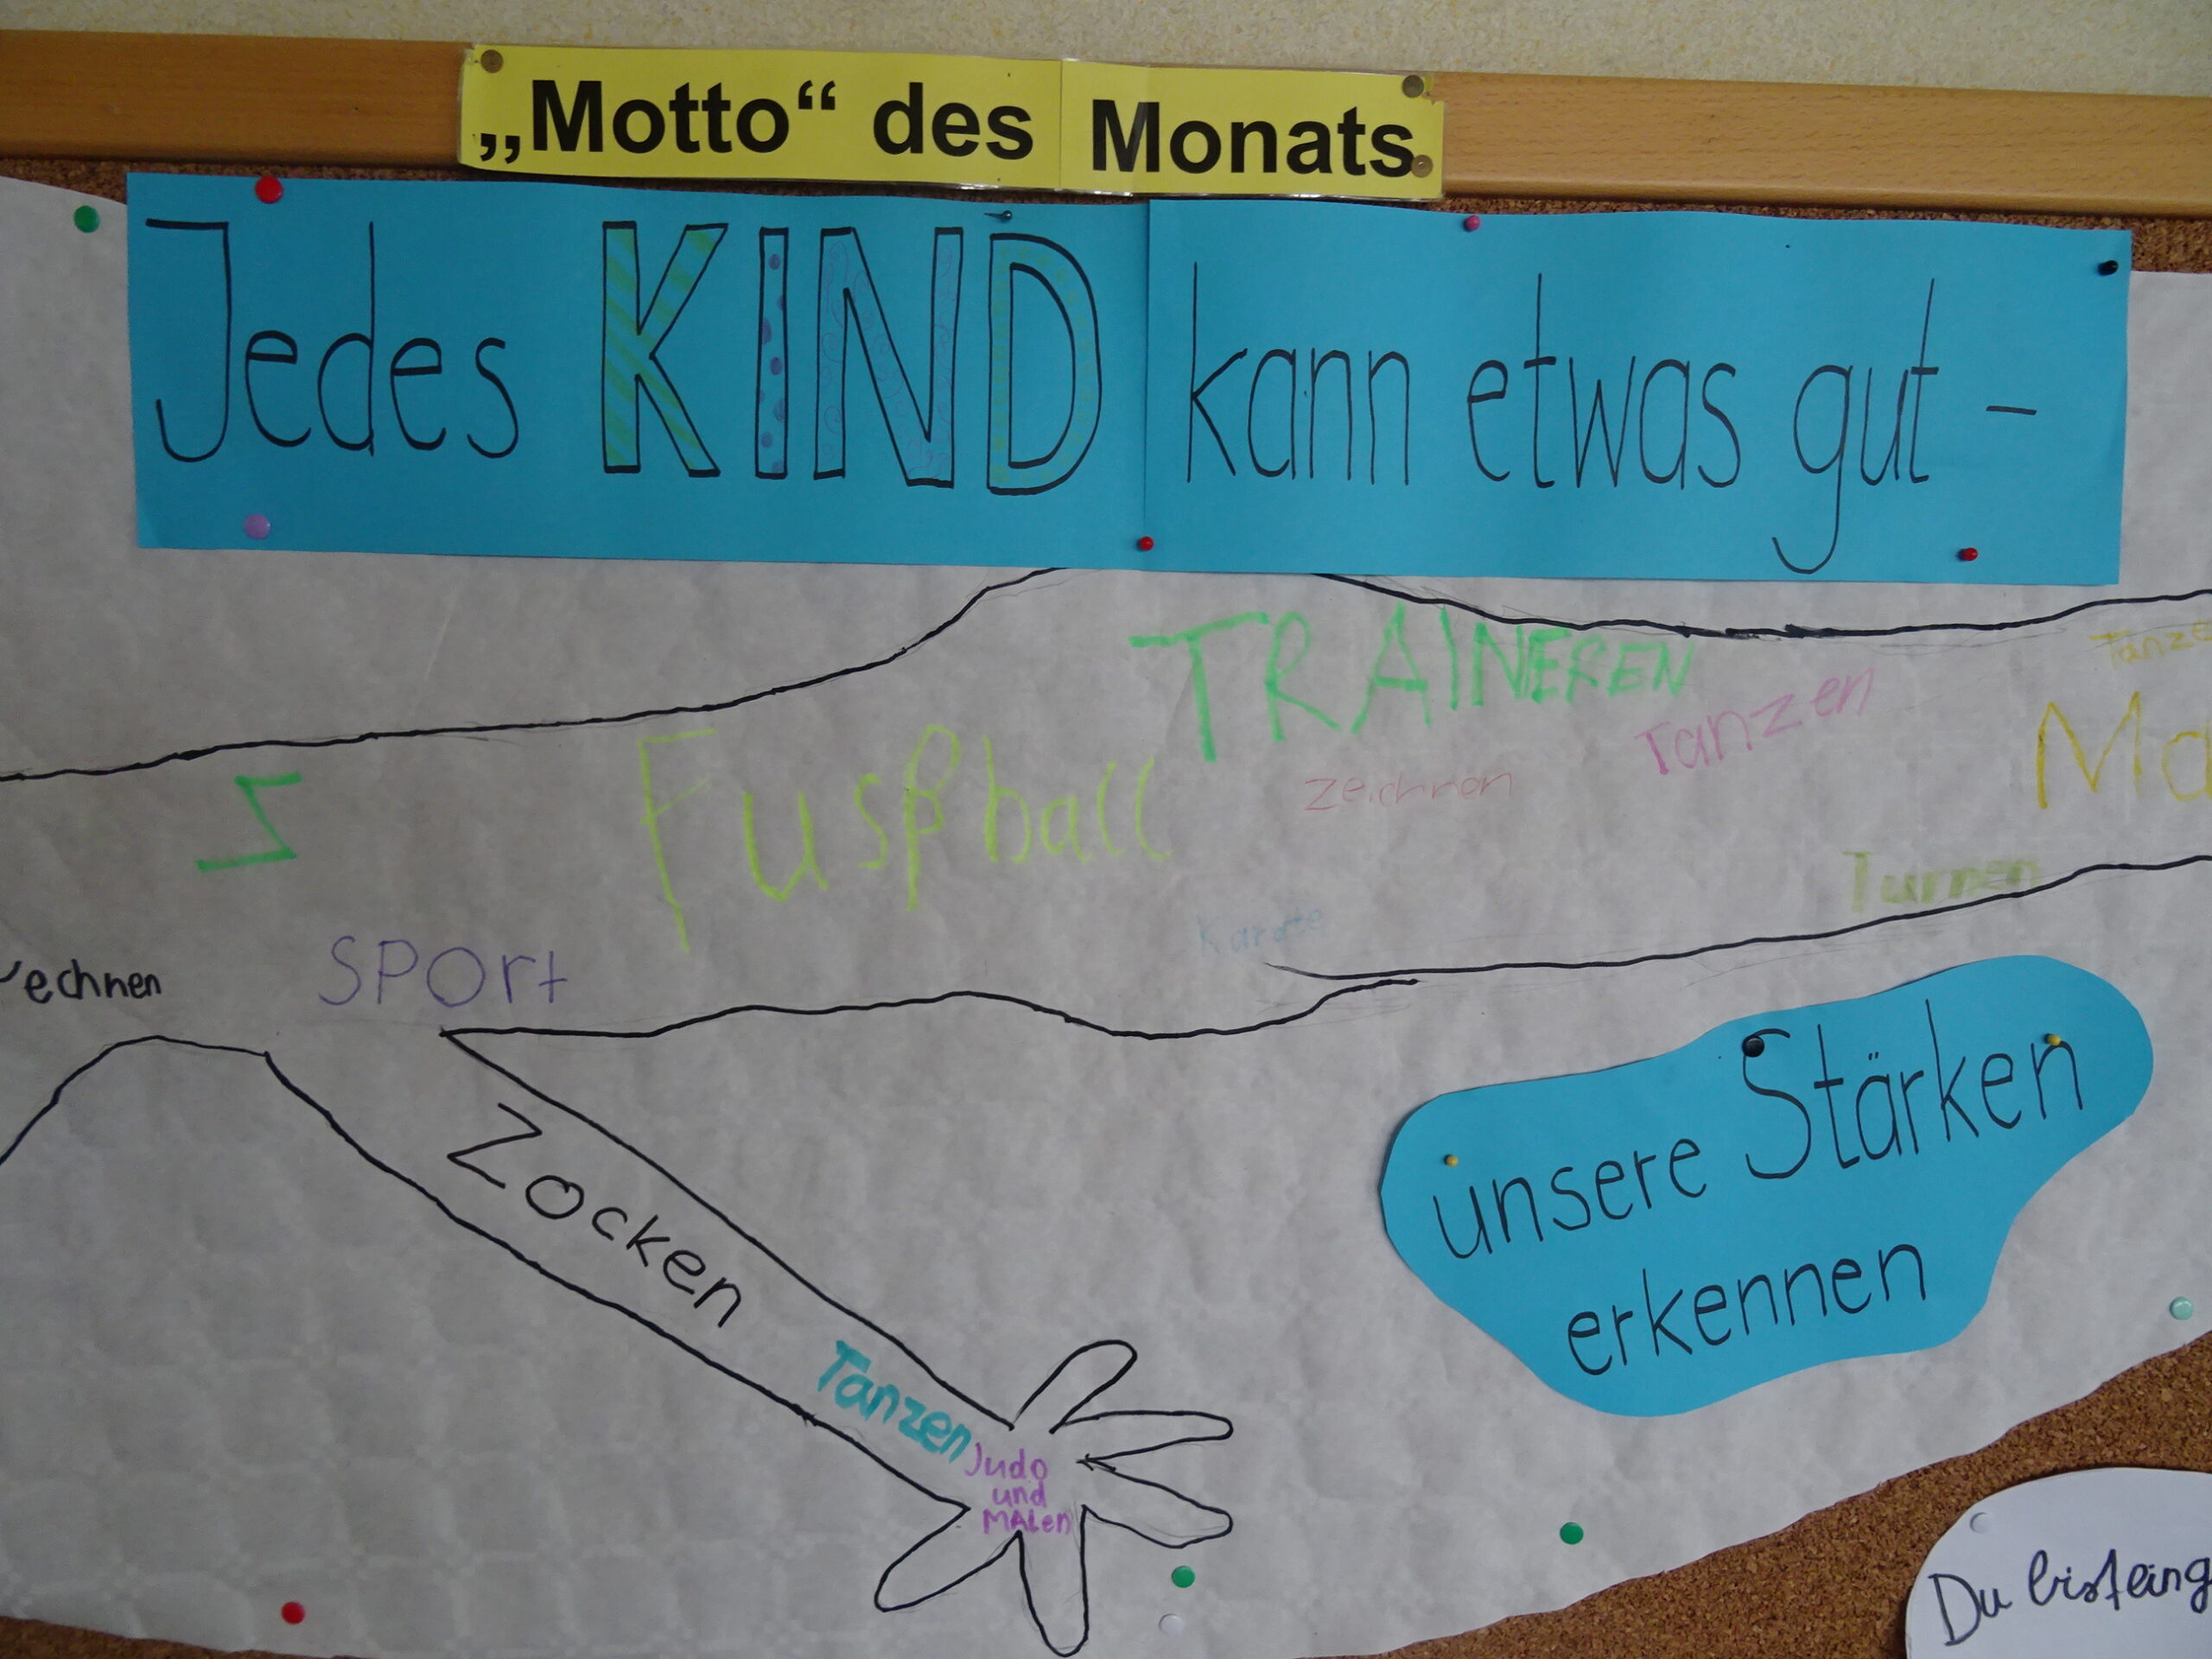 „Motto“ des Monats
Jedes KIND kann etwas gut -
TRAINEREN
Tanzen
zeichnen
Fusßball
S
Karate
Turnen
SPOrt
Zocken
Tanzen
Judo
und
MALen
unsere Stärken
erkennen
Du bist